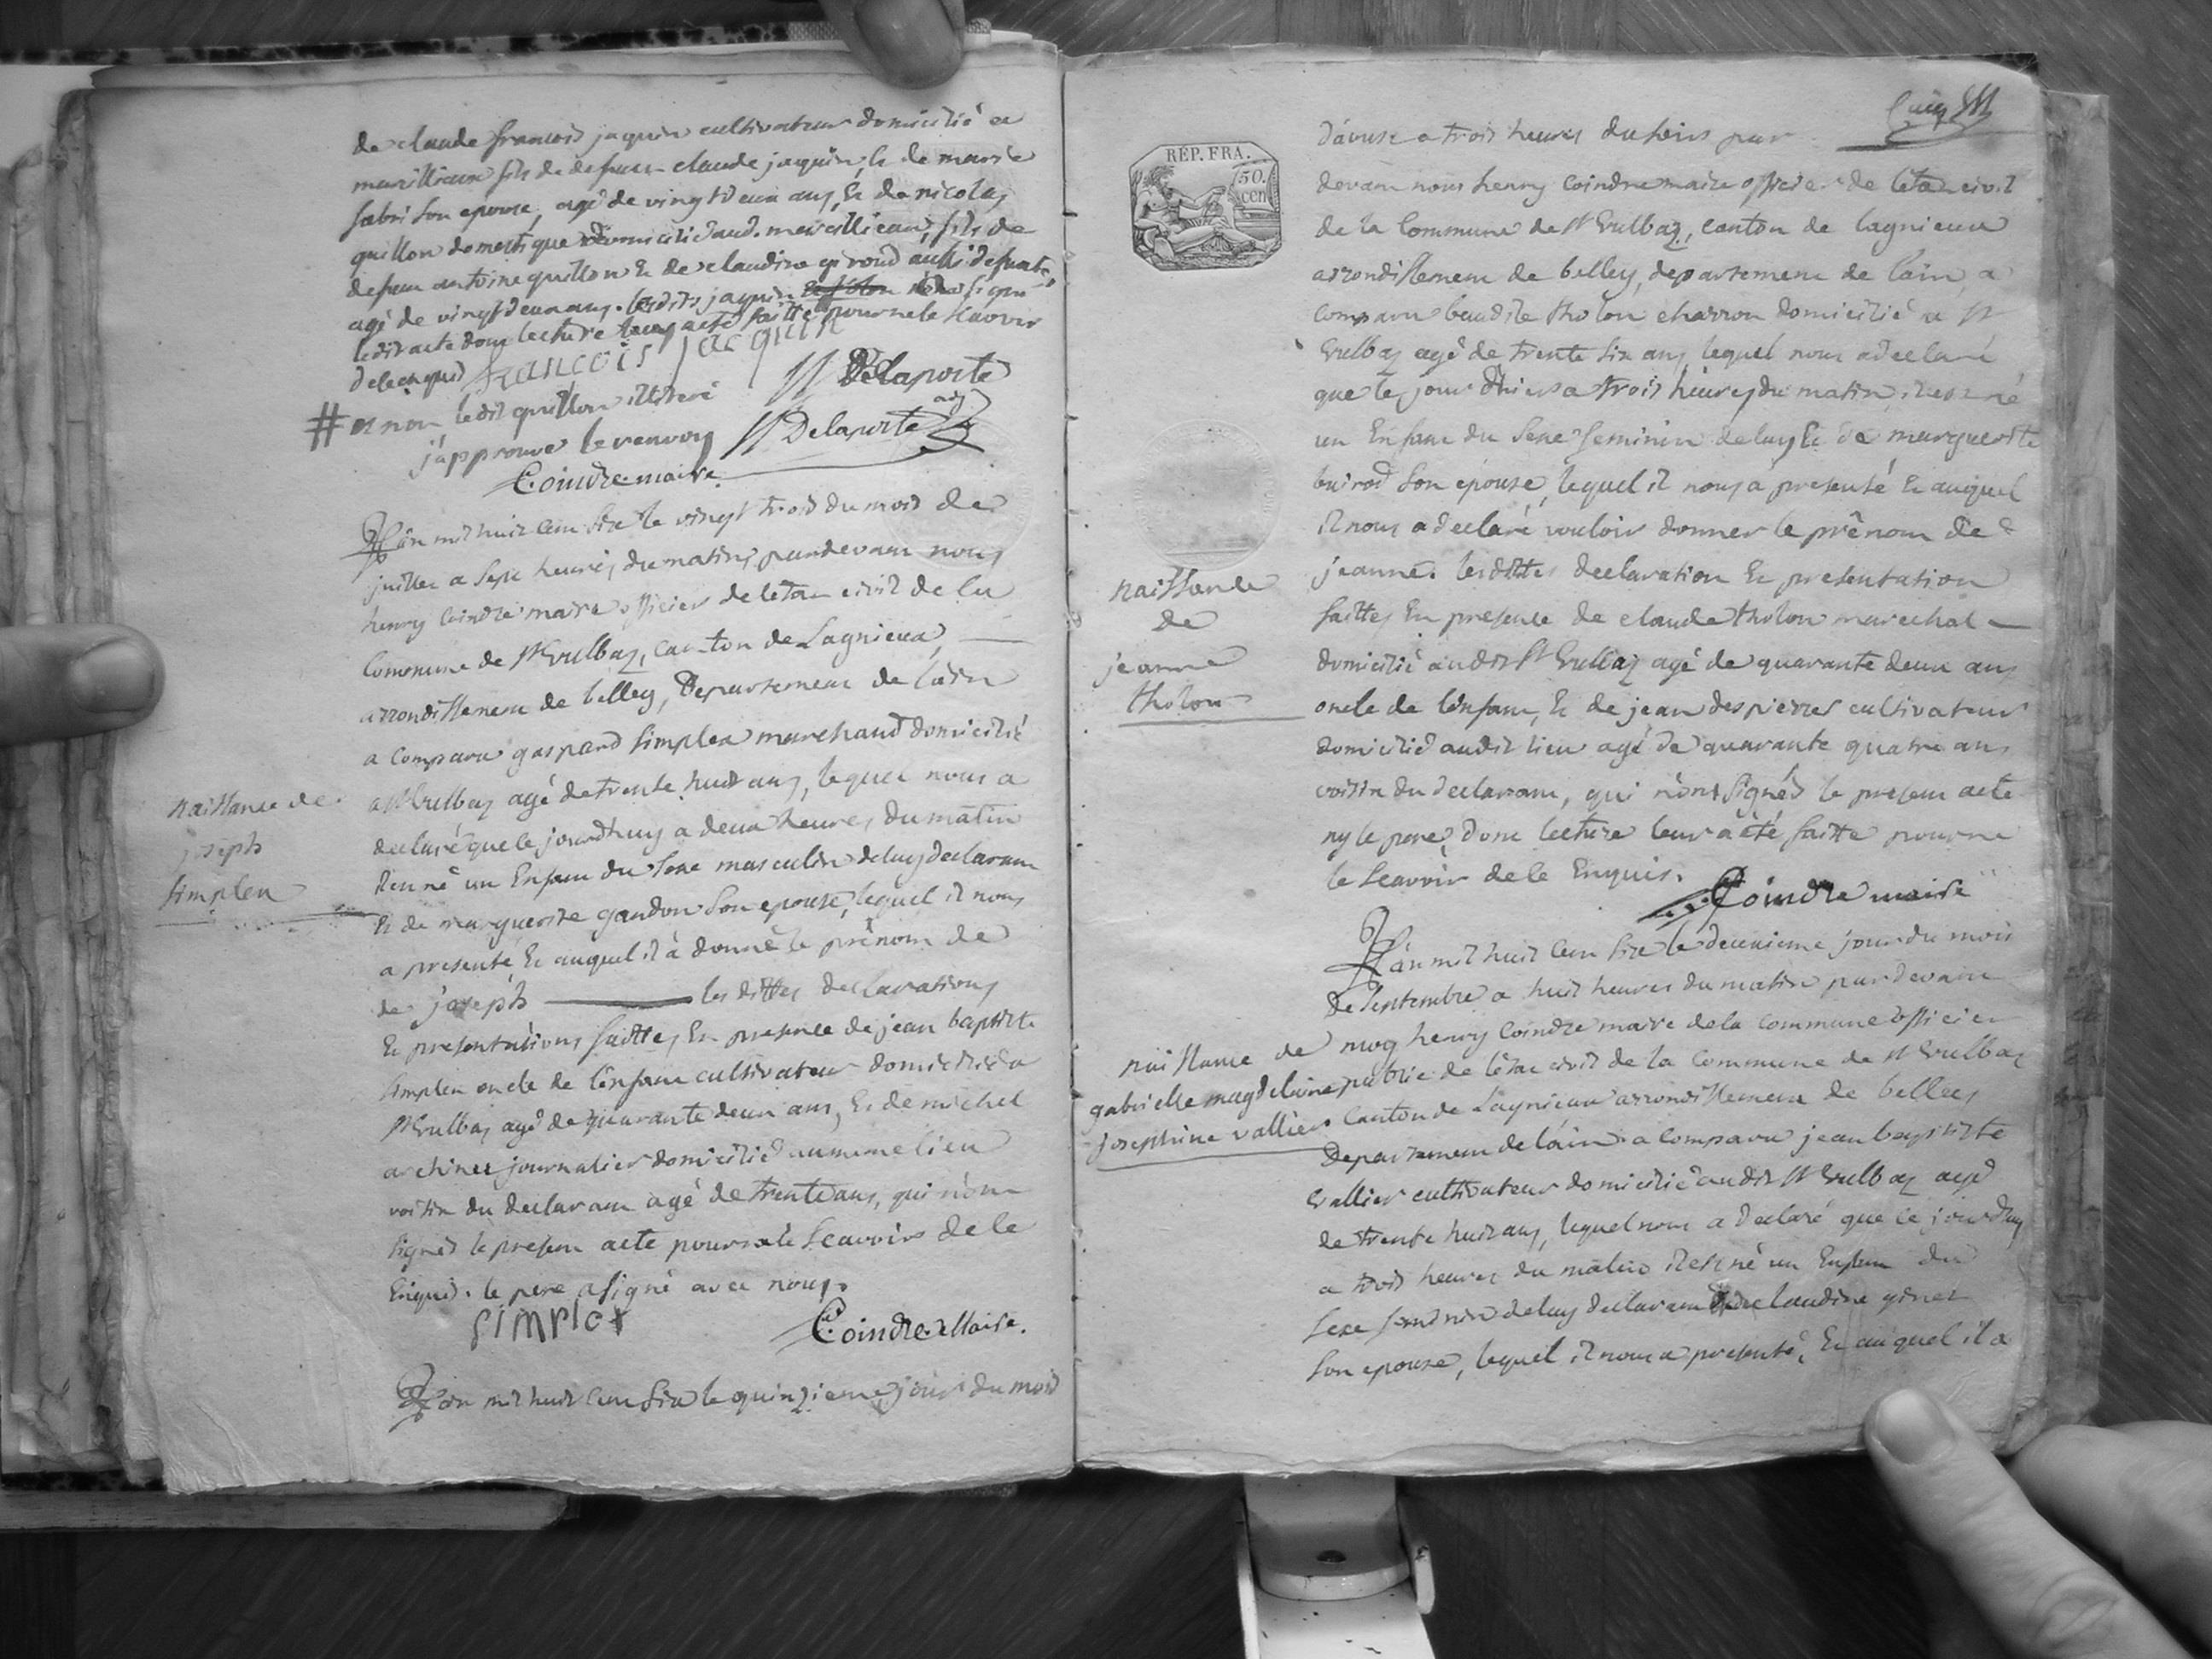 de claude francois jaquin cultivateur domicilié a
marillieux fils de defunt claude jaquin, & de marie
fabri son epouse, agé de vingt deux ans, & de nicolas
quillon domestique domicilié aud. marcillieau, fils de
defun antoine quillon & de claudine giroud aussi defunte,
agé de vingt deux ans. lesdits jaquin signé
ledit acte dont lecture leur a eté faitte pour ne le scavoir
de le enquis francois jacquin
# et non ledit quillon illiteré
j'approuve le renvoy
Delaporte
Delaporte adj
Coindre maire
L'an mil huit cen six le vingt trois du mois de
juillet a sept heures du matin, pardevant nous
henry Coindre maire officier de l'etat civil de la
Commune de St Vulbaz, canton de Lagnieux,
arrondissement de belley, Departement de l'ain
a comparu gaspard simplex marchand domicilié
a St Vulbaz agé de trente huit ans, lequel nous a
declaré que le jourdhuy a deux heures du matin
il est né un Enfant du sexe masculin de luy declarant
& de marguerite gandon son epouse, lequel il nous
a presenté, & auquel il à donné le prénom de
de joseph les dittes declarations
& presentations faittes En presence de jean baptiste
simplex oncle de l'enfant cultivateur domicilié a
St Vulbaz agé de quarante deux ans, & de michel
archiner journalier domicilié au meme lieu
voisin du declarant agé de trente ans, qui n'ont
signés le presen acte pour ne le scavoir de le
Enquis. le pere a signé avec nous.
simplex
Coindre. Maire.
L'an mil huit cen six le quinzieme jour du mois
naissance de
joseph
simplex
RÉP. FRA.
50.
cen
d'aoust a trois heures du soir par
devant nous henry Coindre maire officier de l'etat civil
de la Commune de St Vulbaz, canton de lagnieux
arrondissement de belley, departement de l'ain, a
comparu baudile tholon charron domicilié a St
Vulbaz agé de trente six ans lequel nous a declaré
que le jour d'hier a trois heures du matin, il est né
un Enfant du sexe feminin de luy & de marguerite
buirod son epouse, lequel il nous a presenté & auquel
il nous a declaré vouloir donner le prénom De
jeanne. lesdittes declaration & presentation
faittes En presence de claude tholon marechal
domicilié audit St Vulbaz agé de quarante deux ans
oncle de l'enfant, & de jean despierres cultivateur
domicilié audit lieu agé de quarante quatre ans
voisin du declarant, qui n'ont signés le presen acte
ny le pere, dont lecture leur a eté faitte pour ne
le scavoir de le Enquis.
Coindre maire
naissance
de
jeanne
tholon
L'an mil huit cen six le deuxieme jour du mois
de septembre a huit heures du matin pardevant
moy henry Coindre maire de la commune officier
public de l'etat civil de la Commune de St Vulbaz
Canton de Lagnieux arrondissement de belley
Departement de l'ain. a comparu jean baptiste
Vallier cultivateur domicilié audit St Vulbaz agé
de trente huit ans, lequel nous a declaré que ce jourdhuy
a trois heures du matin il est né un Enfant du
sexe feminin de luy declarant & de claudine giner
son epouse, lequel il nous a presenté, & auquel il a
naissance de
gabrielle magdelaine
josephine vallier